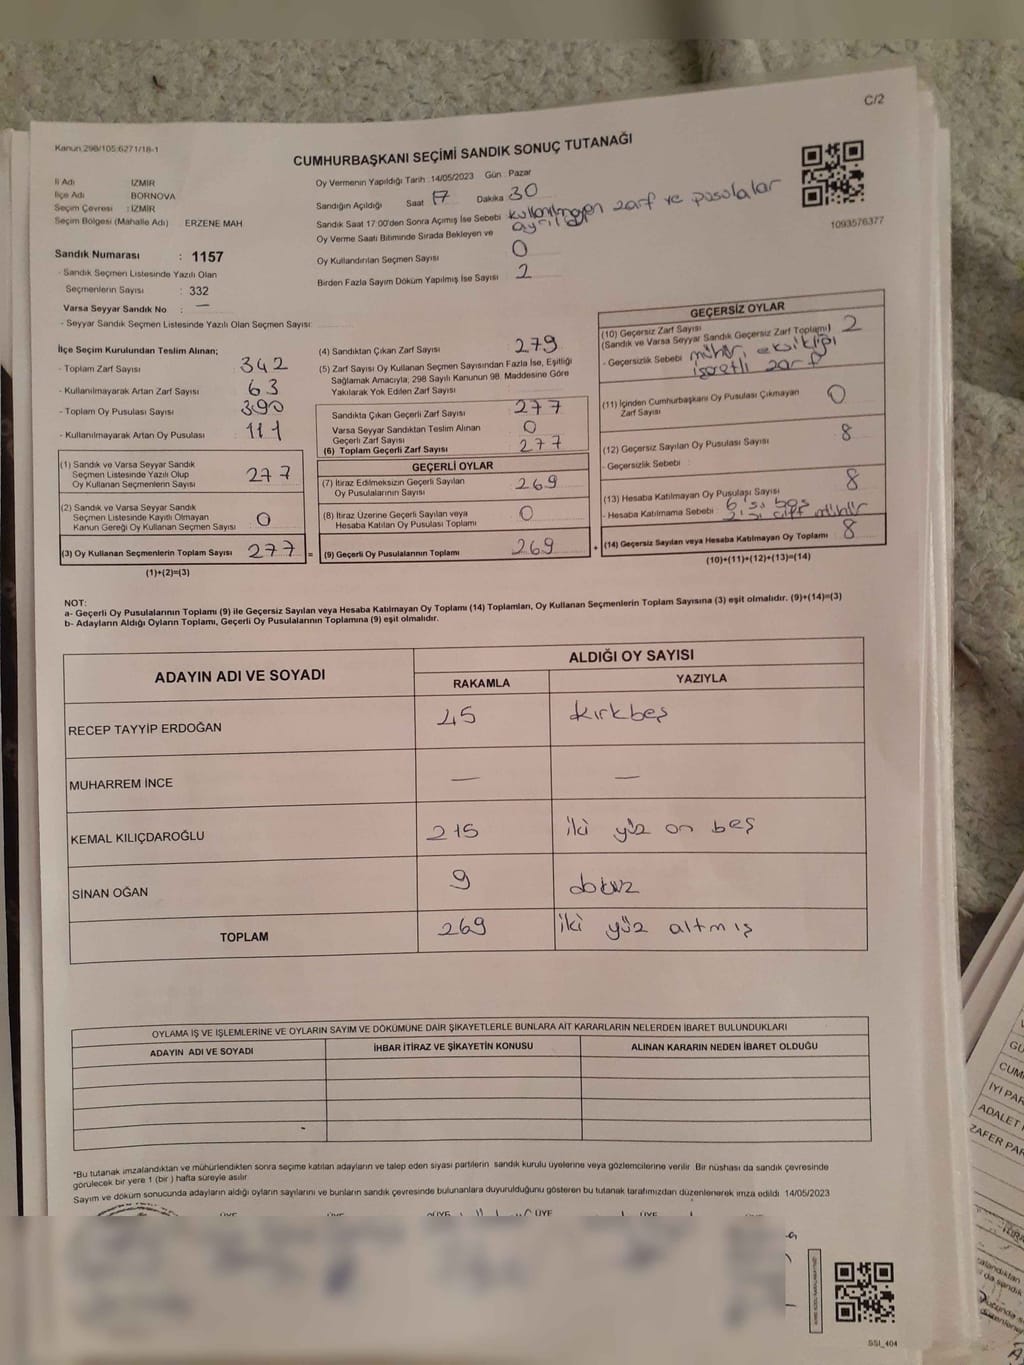 C/2
Kanun:298/105:6271/18-1
CUMHURBAŞKANI SEÇİMİ SANDIK SONUÇ TUTANAĞI
İl Adı İZMİR
İlçe Adı BORNOVA
Seçim Çevresi : İZMİR
Seçim Bölgesi (Mahalle Adı) ERZENE MAH
Sandık Numarası : 1157
- Sandık Seçmen Listesinde Yazılı Olan
Seçmenlerin Sayısı : 332
Varsa Seyyar Sandık No : —
- Seyyar Sandık Seçmen Listesinde Yazılı Olan Seçmen Sayısı:
Oy Vermenin Yapıldığı Tarih :14/05/2023 Gün : Pazar
Sandığın Açıldığı Saat 17 Dakika 30
Sandık Saat 17:00'den Sonra Açılmış İse Sebebi kullanılmayan zarf ve pusulalar
Oy Verme Saati Bitiminde Sırada Bekleyen ve
Oy Kullandırılan Seçmen Sayısı 0
Birden Fazla Sayım Döküm Yapılmış İse Sayısı 2
1093576377
İlçe Seçim Kurulundan Teslim Alınan;
- Toplam Zarf Sayısı : 342
- Kullanılmayarak Artan Zarf Sayısı : 63
- Toplam Oy Pusulası Sayısı : 390
- Kullanılmayarak Artan Oy Pusulası : 111
(1) Sandık ve Varsa Seyyar Sandık
Seçmen Listesinde Yazılı Olup
Oy Kullanan Seçmenlerin Sayısı 277
(2) Sandık ve Varsa Seyyar Sandık
Seçmen Listesinde Kayıtlı Olmayan
Kanun Gereği Oy Kullanan Seçmen Sayısı 0
(3) Oy Kullanan Seçmenlerin Toplam Sayısı 277 =
(1)+(2)=(3)
(4) Sandıktan Çıkan Zarf Sayısı 279
(5) Zarf Sayısı Oy Kullanan Seçmen Sayısından Fazla İse, Eşitliği
Sağlamak Amacıyla, 298 Sayılı Kanunun 98. Maddesine Göre
Yakılarak Yok Edilen Zarf Sayısı
Sandıkta Çıkan Geçerli Zarf Sayısı 277
Varsa Seyyar Sandıktan Teslim Alınan
Geçerli Zarf Sayısı 0
(6) Toplam Geçerli Zarf Sayısı 277
GEÇERLİ OYLAR
(7) İtiraz Edilmeksizin Geçerli Sayılan
Oy Pusulalarının Sayısı 269
(8) İtiraz Üzerine Geçerli Sayılan veya
Hesaba Katılan Oy Pusulası Toplamı 0
(9) Geçerli Oy Pusulalarının Toplamı 269 +
GEÇERSİZ OYLAR
(10) Geçersiz Zarf Sayısı
(Sandık ve Varsa Seyyar Sandık Geçersiz Zarf Toplamı) 2
- Geçersizlik Sebebi mühür eksikliği
işaretli zarf
(11) İçinden Cumhurbaşkanı Oy Pusulası Çıkmayan
Zarf Sayısı 0
(12) Geçersiz Sayılan Oy Pusulası Sayısı 8
- Geçersizlik Sebebi :
(13) Hesaba Katılmayan Oy Pusulası Sayısı 8
- Hesaba Katılmama Sebebi : 6'sı boş
2'si çift mühür
(14) Geçersiz Sayılan veya Hesaba Katılmayan Oy Toplamı 8
(10)+(11)+(12)+(13)=(14)
NOT:
a- Geçerli Oy Pusulalarının Toplamı (9) ile Geçersiz Sayılan veya Hesaba Katılmayan Oy Toplamı (14) Toplamları, Oy Kullanan Seçmenlerin Toplam Sayısına (3) eşit olmalıdır. (9)+(14)=(3)
b- Adayların Aldığı Oyların Toplamı, Geçerli Oy Pusulalarının Toplamına (9) eşit olmalıdır.
ADAYIN ADI VE SOYADI ALDIĞI OY SAYISI
RAKAMLA YAZIYLA
RECEP TAYYİP ERDOĞAN 45 kırkbeş
MUHARREM İNCE — —
KEMAL KILIÇDAROĞLU 215 iki yüz on beş
SİNAN OĞAN 9 dokuz
TOPLAM 269 iki yüz altmış
OYLAMA İŞ VE İŞLEMLERİNE VE OYLARIN SAYIM VE DÖKÜMÜNE DAİR ŞİKAYETLERLE BUNLARA AİT KARARLARIN NELERDEN İBARET BULUNDUKLARI
ADAYIN ADI VE SOYADI İHBAR İTİRAZ VE ŞİKAYETİN KONUSU ALINAN KARARIN NEDEN İBARET OLDUĞU
*Bu tutanak imzalandıktan ve mühürlendikten sonra seçime katılan adayların ve talep eden siyasi partilerin sandık kurulu üyelerine veya gözlemcilerine verilir. Bir nüshası da sandık çevresinde
görülecek bir yere 1 (bir) hafta süreyle asılır.
Sayım ve döküm sonucunda adayların aldığı oyların sayılarını ve bunların sandık çevresinde bulunanlara duyurulduğunu gösteren bu tutanak tarafımızdan düzenlenerek imza edildi. 14/05/2023
ÜYE ÜYE ÜYE
SSI_404
CUM
İYİ PAR
ADALET
ZAFER PAR